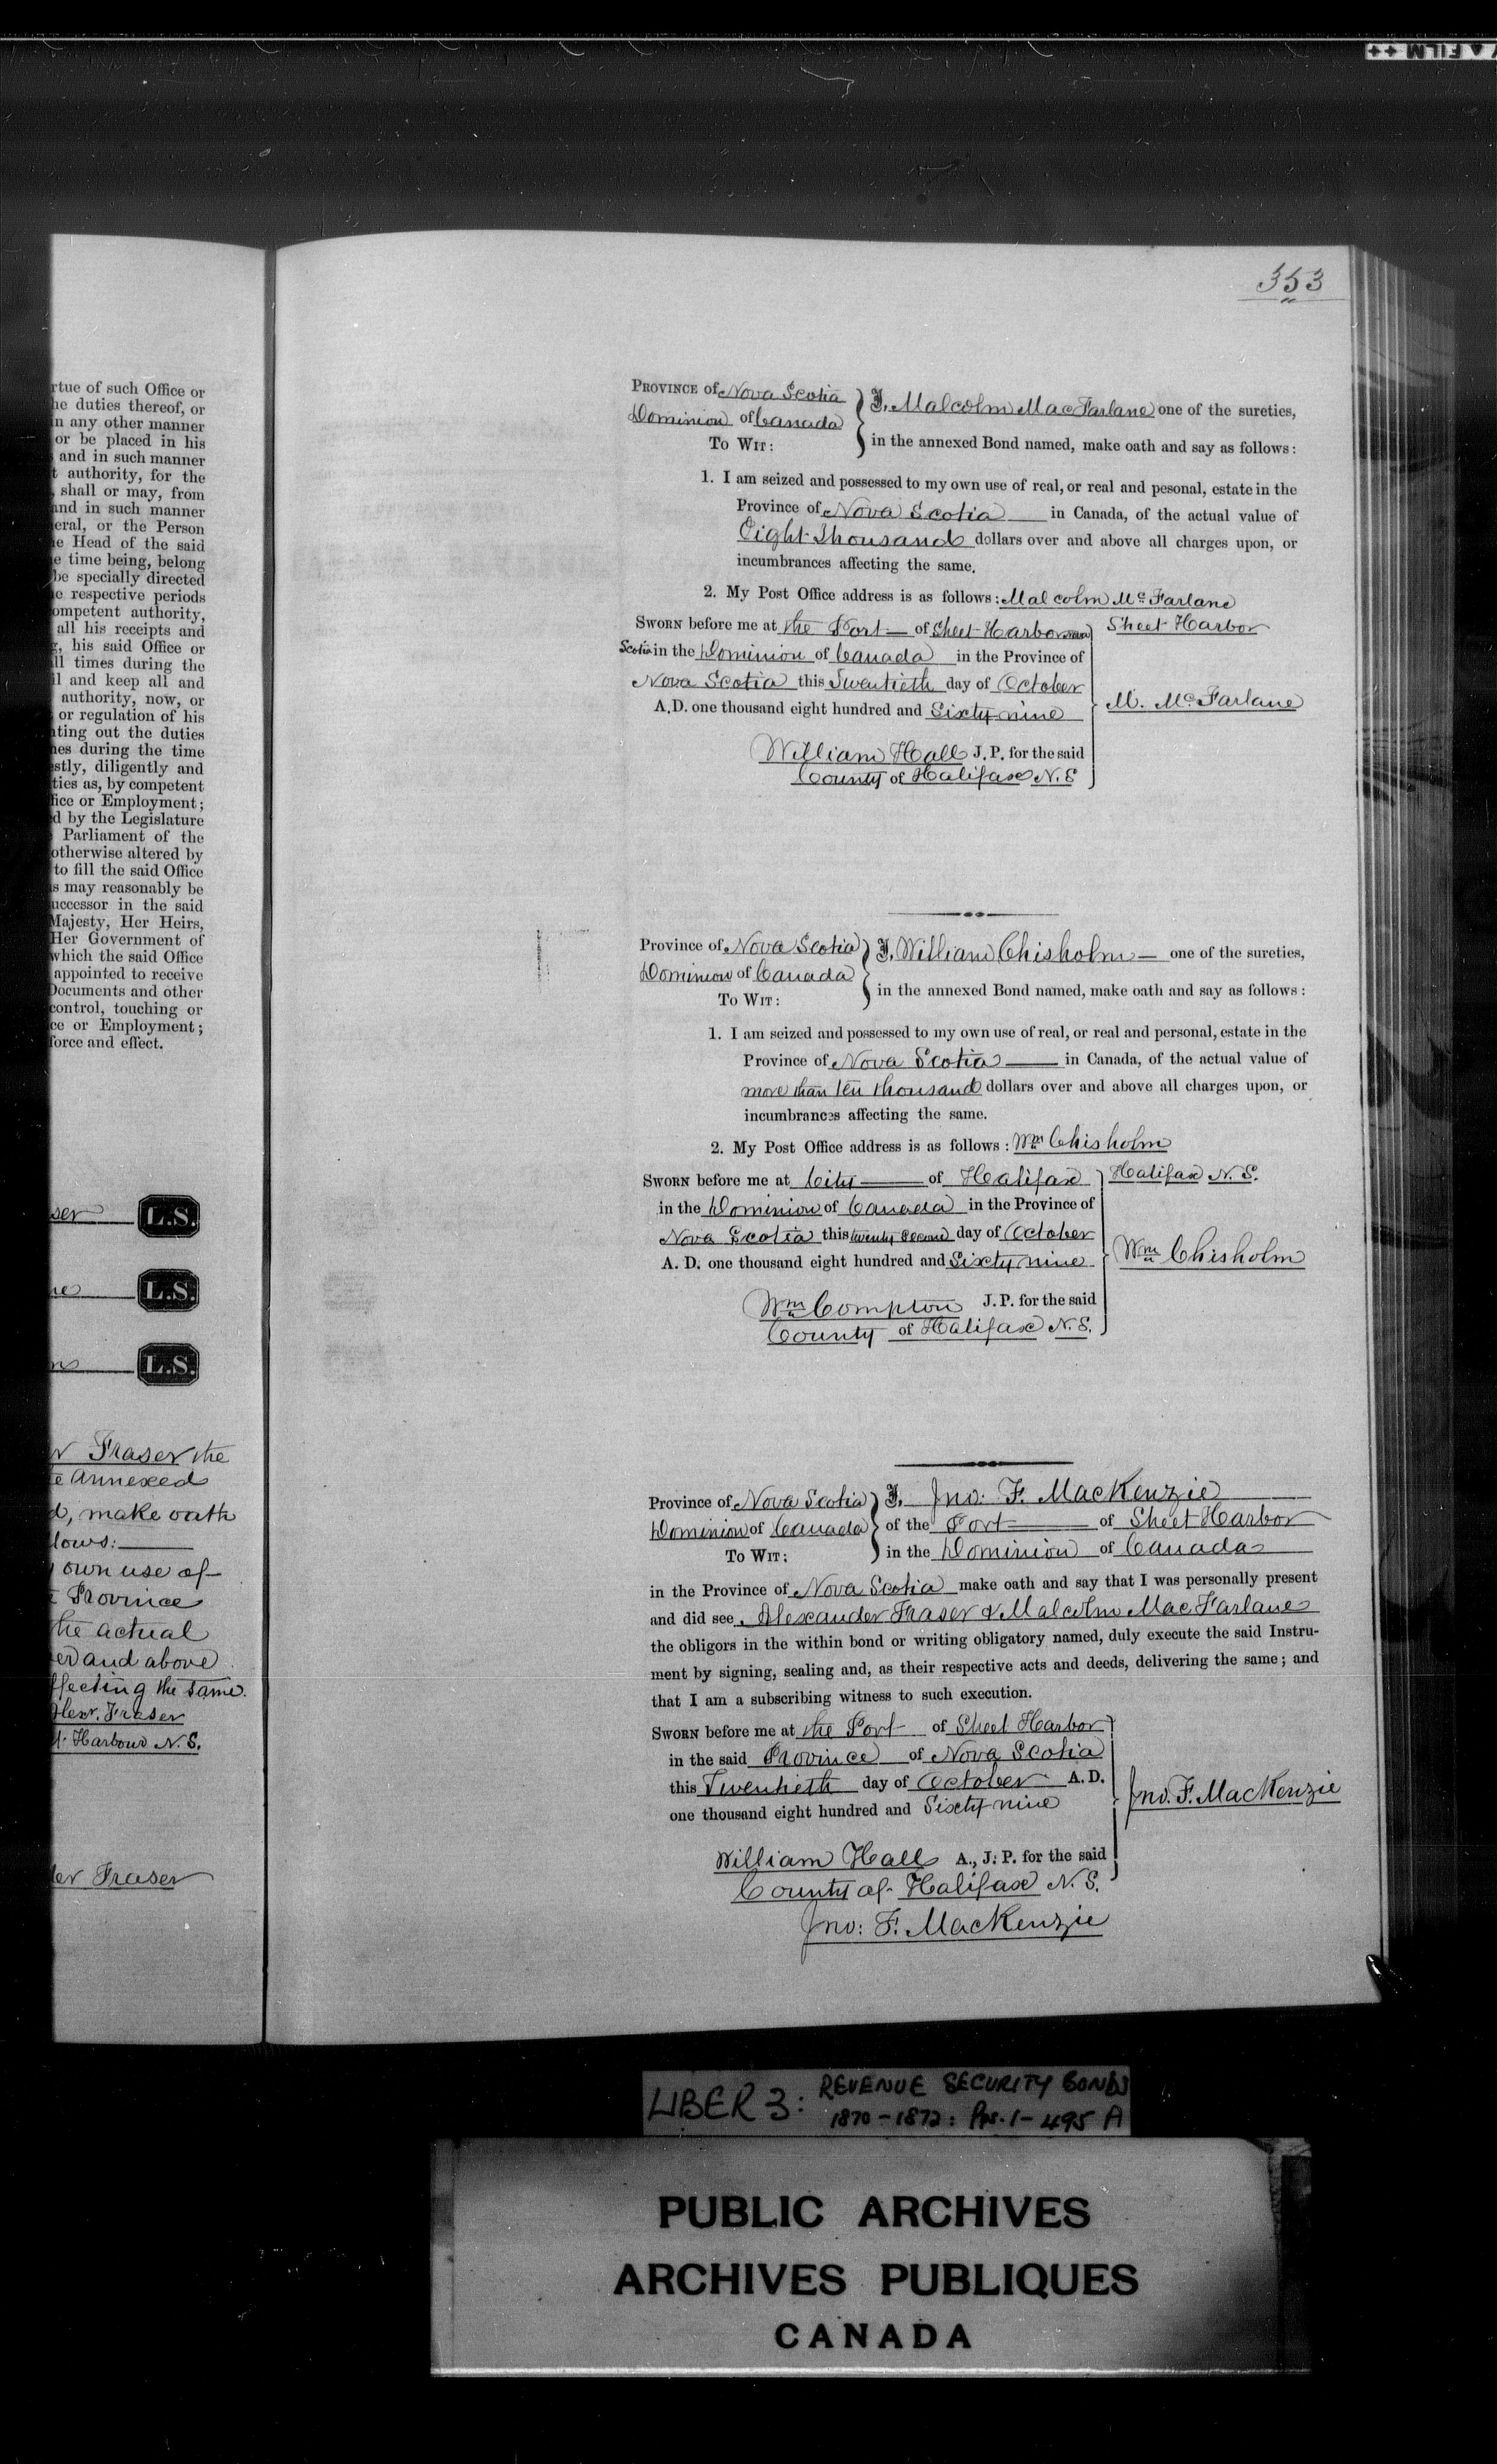 FILM
353
rtue of such Office or
he duties thereof, or
in any other manner
or be placed in his
and in such manner
t authority, for the
, shall or may, from
and in such manner
eral, or the Person
e Head of the said
e time being, belong
be specially directed
e respective periods
ompetent authority,
all his receipts and
, his said Office or
ll times during the
ll and keep all and
authority, now, or
or regulation of his
ting out the duties
es during the time
stly, diligently and
ties as, by competent
fice or Employment;
d by the Legislature
Parliament of the
otherwise altered by
to fill the said Office
s may reasonably be
uccessor in the said
Majesty, Her Heirs,
Her Government of
which the said Office
appointed to receive
Documents and other
control, touching or
ce or Employment;
force and effect.
ser L.S.
ne L.S.
L.S.
r Fraser the
e annexed
d, make oath
lows:
own use of
Province
the actual
er and above
ffecting the same.
Alexr. Fraser
t. Harbour N.S.
er Fraser
PROVINCE of Nova Scotia } I, Malcolm MacFarlane one of the sureties,
Dominion of Canada
TO WIT: in the annexed Bond named, make oath and say as follows:
1. I am seized and possessed to my own use of real, or real and pesonal, estate in the
Province of Nova Scotia in Canada, of the actual value of
Eight Thousand dollars over and above all charges upon, or
incumbrances affecting the same.
2. My Post Office address is as follows: Malcolm McFarlane
SWORN before me at the Port of Sheet Harbor Nova } Sheet Harbor
Scotia in the Dominion of Canada in the Province of
Nova Scotia this Twentieth day of October
A.D. one thousand eight hundred and Sixty nine M. McFarlane
William Hall J. P. for the said
County of Halifax N.S
Province of Nova Scotia } I, William Chisholm — one of the sureties,
Dominion of Canada
TO WIT: in the annexed Bond named, make oath and say as follows:
1. I am seized and possessed to my own use of real, or real and personal, estate in the
Province of Nova Scotia in Canada, of the actual value of
more than ten thousand dollars over and above all charges upon, or
incumbrances affecting the same.
2. My Post Office address is as follows: Wm Chisholm
SWORN before me at City of Halifax } Halifax N.S.
in the Dominion of Canada in the Province of
Nova Scotia this twenty second day of October
A. D. one thousand eight hundred and Sixty nine Wm Chisholm
Wm Compton J. P. for the said
County of Halifax N.S.
Province of Nova Scotia } I. Jno: F. MacKenzie
Dominion of Canada of the Port of Sheet Harbor
TO WIT: in the Dominion of Canada
in the Province of Nova Scotia make oath and say that I was personally present
and did see Alexander Fraser & Malcolm MacFarlane
the obligors in the within bond or writing obligatory named, duly execute the said Instru-
ment by signing, sealing and, as their respective acts and deeds, delivering the same; and
that I am a subscribing witness to such execution.
SWORN before me at the Port of Sheet Harbor
in the said Province of Nova Scotia
this Twentieth day of October A.D.
one thousand eight hundred and Sixty nine } Jno. F. MacKenzie
William Hall A., J. P. for the said
County of Halifax N.S.
Jno: F. MacKenzie
LIBER 3: REVENUE SECURITY BONDS
1870-1872: Pps. 1-495 A
PUBLIC ARCHIVES
ARCHIVES PUBLIQUES
CANADA